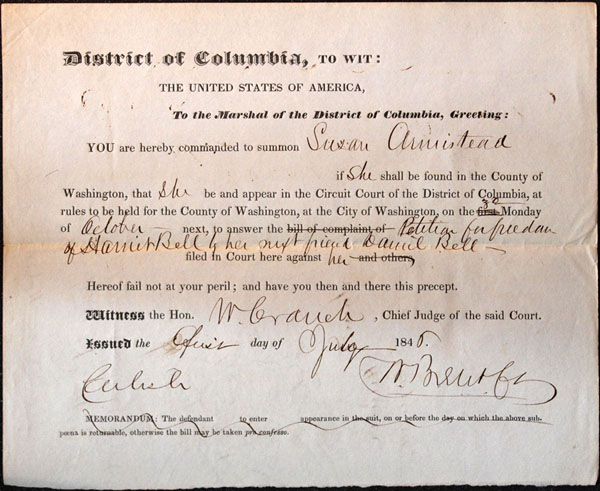 District of Columbia, TO WIT:
THE UNITED STATES OF AMERICA,
To the Marshal of the District of Columbia, Greeting:
YOU are hereby commanded to summon Susan Armistead
if She shall be found in the County of
Washington, that She be and appear in the Circuit Court of the District of Columbia, at
rules to be held for the County of Washington, at the City of Washington, on the 3d first Monday
of October next, to answer the bill of complaint of Petition for freedom
of Harriet Bell by her next friend Daniel Bell
filed in Court here against her and others
Hereof fail not at your peril; and have you then and there this precept.
Witness the Hon. W. Cranch, Chief Judge of the said Court.
Issued the day of July 184
Carlisle W. Brent Clk
MEMORANDUM: The defendant to enter appearance in the suit, on or before the day on which the above sub-
pœna is returnable, otherwise the bill may be taken pro confesso.